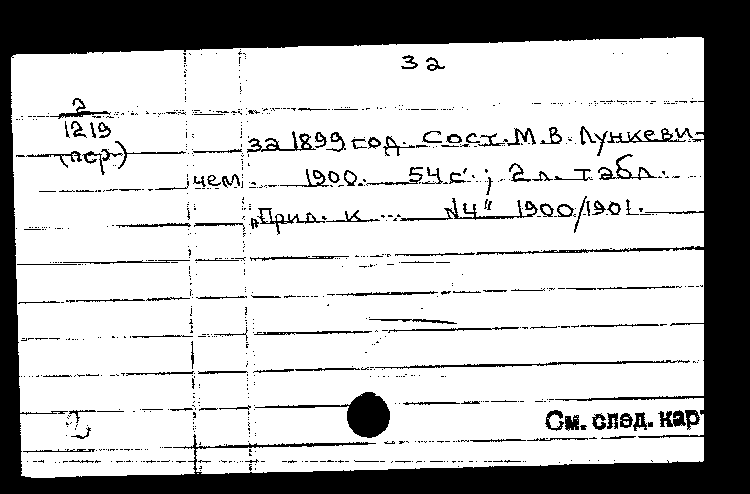 32
2
1219
(пер.)
за 1899 год. Сост. М.В. Лункеви-
чем. 1900. 54 с.; 2 л. табл.
„Прил. к ... №4" 1900/1901.
2
См. след. кар